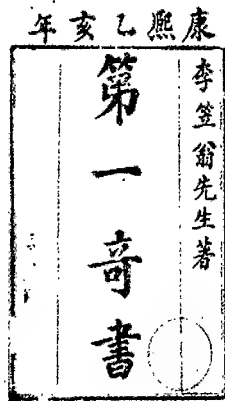 康熙乙亥年
李笠翁先生著
第一奇書